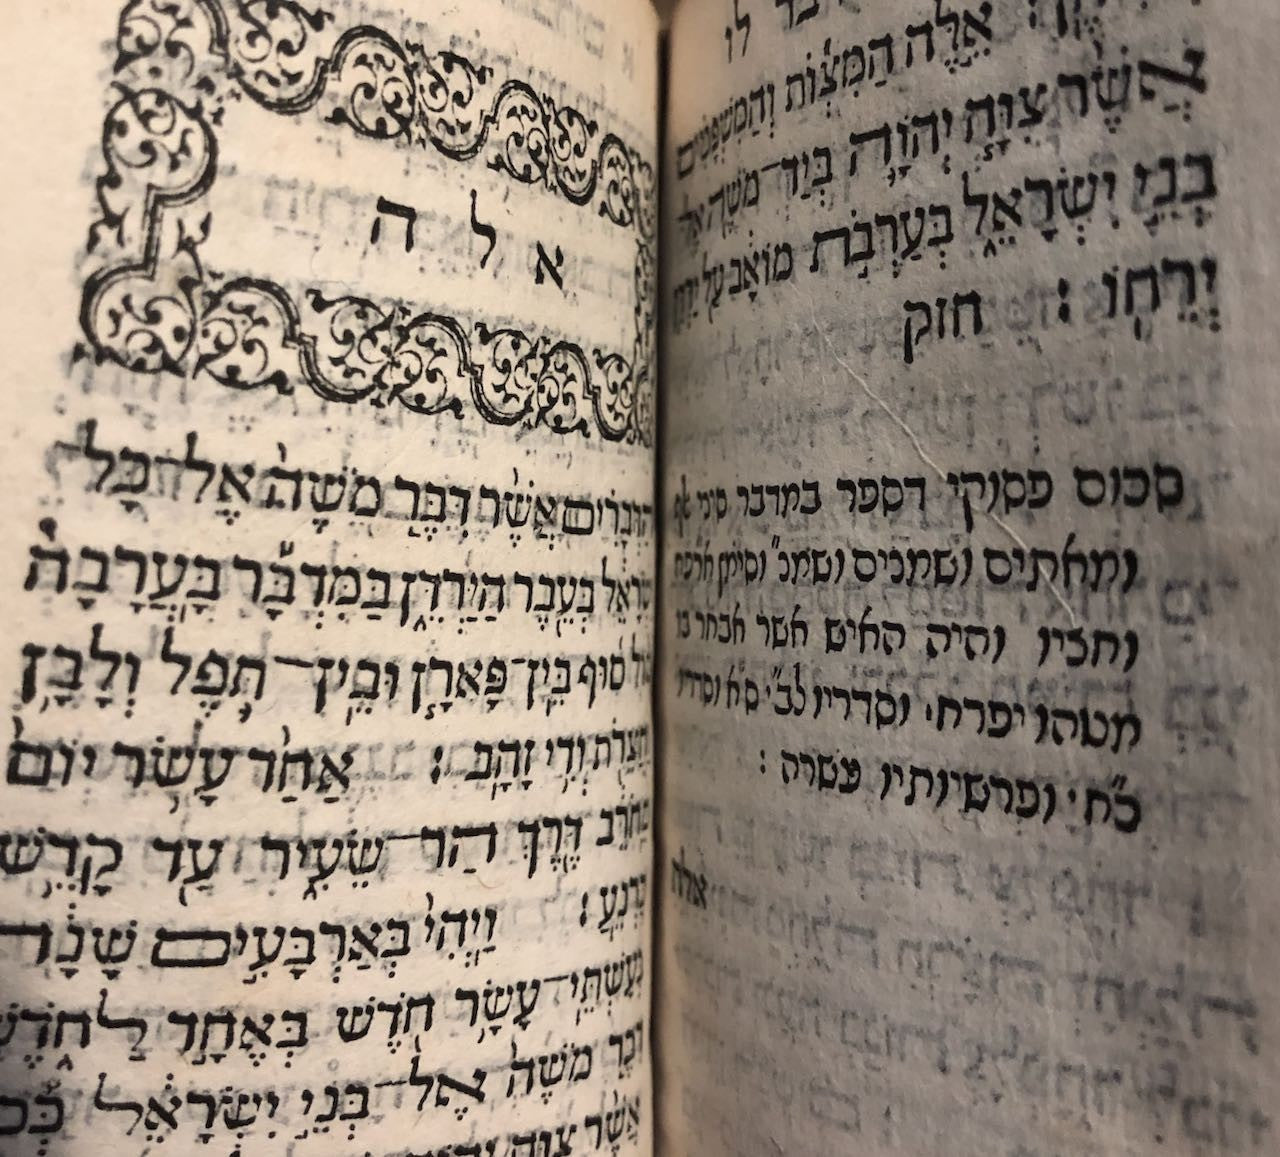 לו
אֵלֶּה הַמִּצְוֹת וְהַמִּשְׁפָּטִים
אֲשֶׁר צִוָּה יְהוָֹה בְּיַד־מֹשֶׁה אֶל־
בְּנֵי יִשְׂרָאֵל בְּעַרְבֹת מוֹאָב עַל יַרְדֵּן
יְרֵחוֹ : חזק
סכוס פסוקי דספר במדבר סיני אלף
ומאתים ושמנים ושמנ"
ותכיו והיה האיש אשר אבחר בו
מטהו יפרח· וסדריו לב"י ס"א וסדריו
כ"ח· ופרשיותיו עשרה :
אלה
אלה
הַדְּבָרִים אֲשֶׁר דִּבֶּר מֹשֶׁה אֶל־כָּל־
יִשְׂרָאֵל בְּעֵבֶר הַיַּרְדֵּן בַּמִּדְבָּר בָּעֲרָבָה
מוֹל סוּף בֵּין־פָּארָן וּבֵין־תֹּפֶל וְלָבָן
וַחֲצֵרֹת וְדִי זָהָב : אַחַד עָשָׂר יוֹם
מֵחֹרֵב דֶּרֶךְ הַר־שֵׂעִיר עַד קָדֵשׁ
בַּרְנֵעַ : וַיְהִי בְּאַרְבָּעִים שָׁנָה
בְּעַשְׁתֵּי־עָשָׂר חֹדֶשׁ בְּאֶחָד לַחֹדֶשׁ
דִּבֶּר מֹשֶׁה אֶל־בְּנֵי יִשְׂרָאֵל כְּכֹל
אֲשֶׁר צִוָּה יְהוָֹה